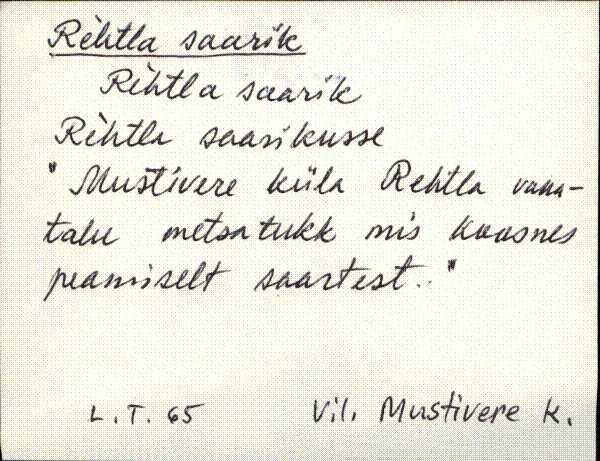 Rèhtla saarik
Rèhtla saarik
Rèhtla saarikusse
"Mustivere küla Rehtla vana-
talu metsatukk mis koosnes
peamiselt saartest.."
L.T. 65 Vil. Mustivere k.